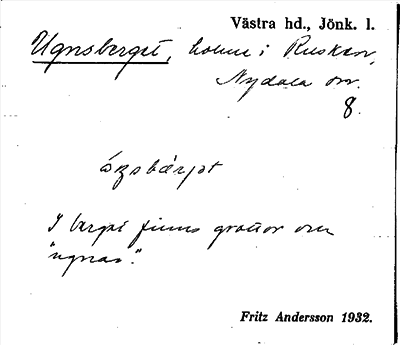 Västra hd., Jönk. l.
Ugnsberget, holme i Rusken,
Nydala sn.
8.
I berget finns grottor som
"ugnar".
Fritz Andersson 1932.